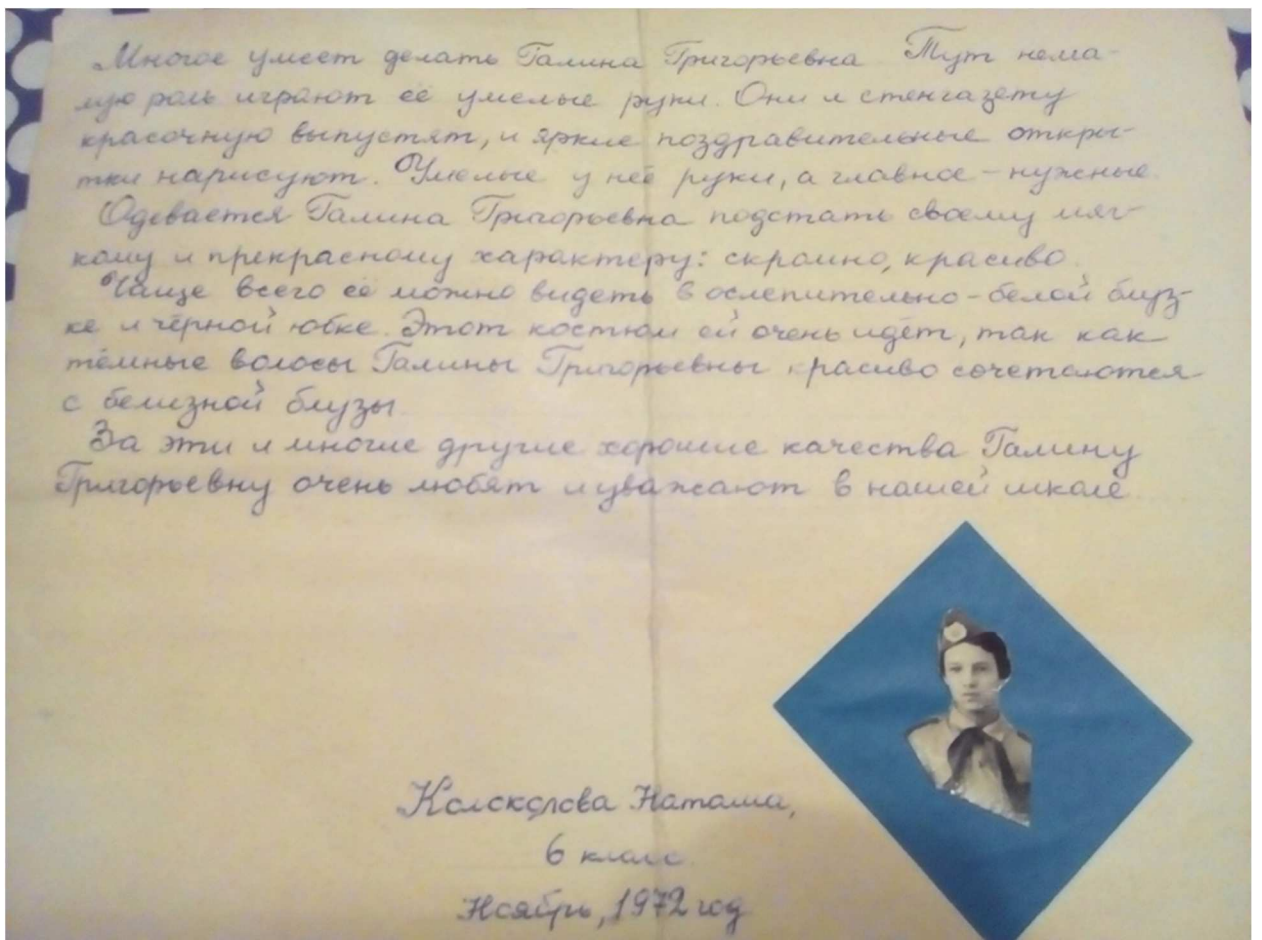 Многое умеет делать Галина Григорьевна Тут нема-
лую роль играют её умелые руки. Они и стенгазету
красочную выпустят, и яркие поздравительные откры-
тки нарисуют. Умелые у неё руки, а главное - нужные.
Одевается Галина Григорьевна подстать своему мяг-
кому и прекрасному характеру: скромно, красиво.
Чаще всего её можно видеть в ослепительно-белой блуз-
ке и чёрной юбке. Этот костюм ей очень идёт, так как
тёмные волосы Галины Григорьевны красиво сочетаются
с белизной блузы.
За эти и многие другие хорошие качества Галину
Григорьевну очень любят и уважают в нашей школе
Колоколова Наташа,
6 класс.
Ноябрь, 1972 год